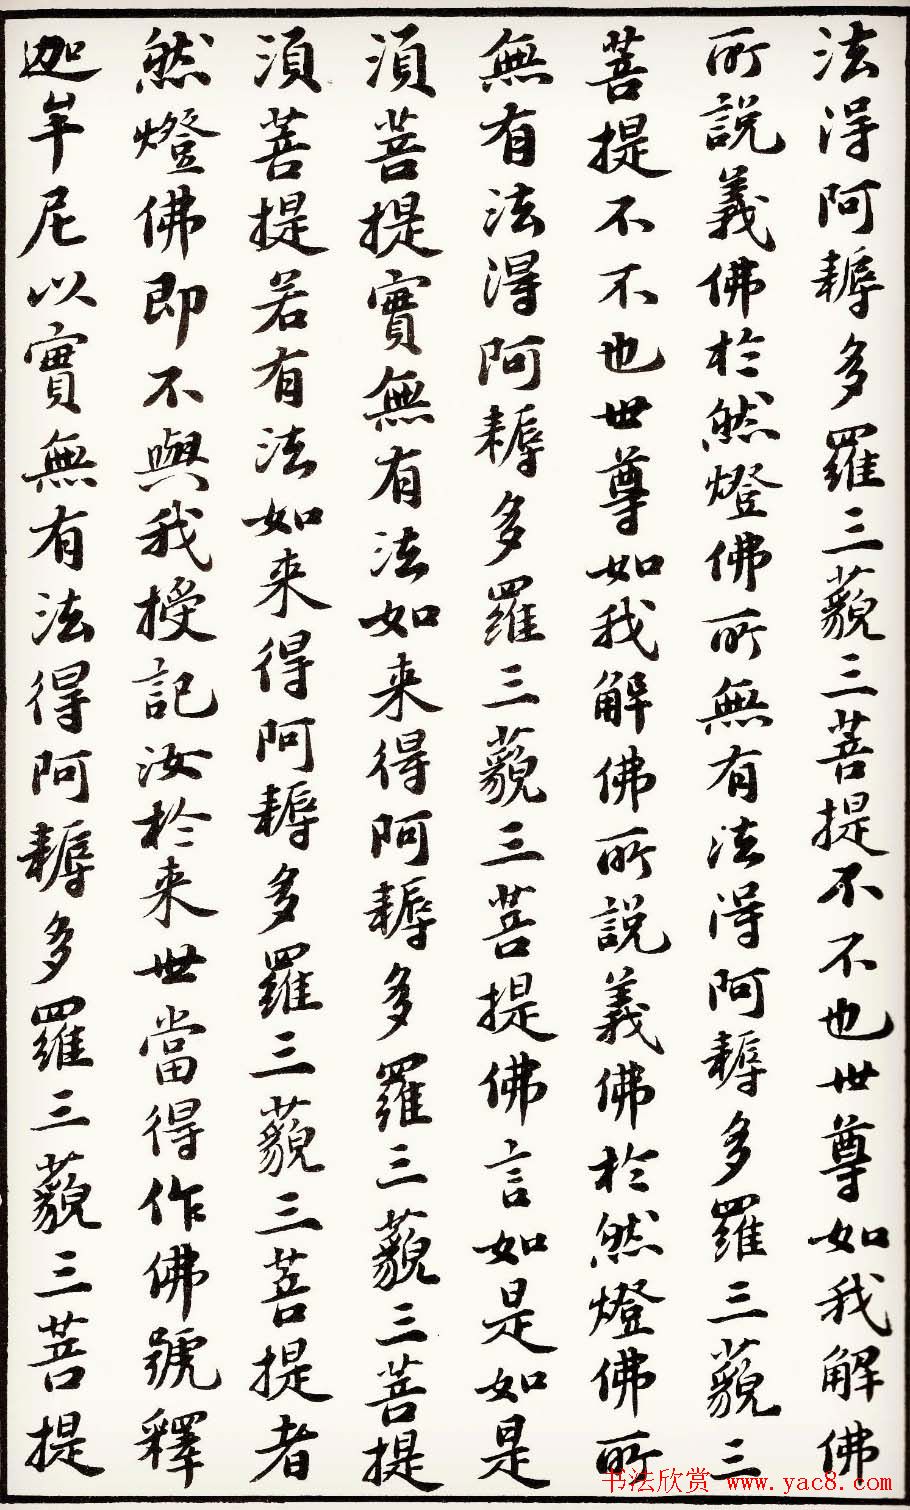 法得阿耨多羅三藐三菩提不不也世尊如我解佛
所說義佛於然燈佛所無有法得阿耨多羅三藐三
菩提不不也世尊如我解佛所說義佛於然燈佛所
無有法得阿耨多羅三藐三菩提佛言如是如是
須菩提實無有法如来得阿耨多羅三藐三菩提
須菩提若有法如来得阿耨多羅三藐三菩提者
然燈佛即不與我授記汝於来世當得作佛號釋
迦牟尼以實無有法得阿耨多羅三藐三菩提
书法欣赏 www.yac8.com